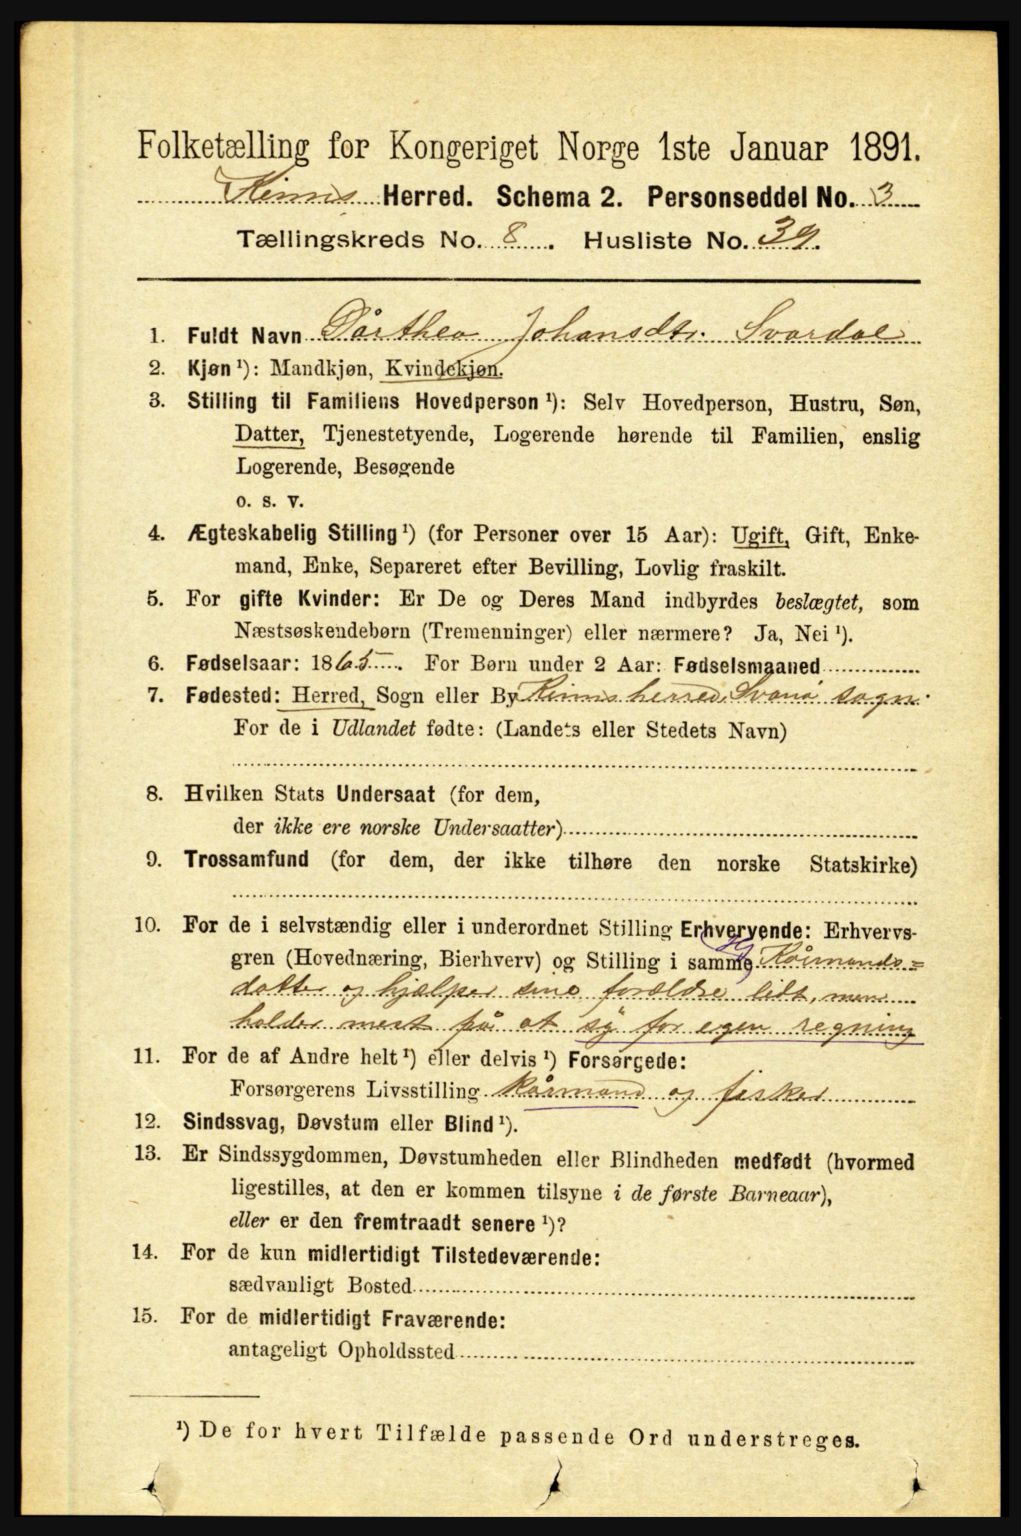 Folketælling for Kongeriget Norge 1ste Januar 1891.
Kinns Herred. Schema 2. Personseddel No. 3
Tællingskreds No. 8. Husliste No. 39.
1. Fuldt Navn Dårthea Johansdtr. Svardal
2. Kjøn ¹): Mandkjøn, Kvindekjøn.
3. Stilling til Familiens Hovedperson ¹): Selv Hovedperson, Hustru, Søn,
Datter, Tjenestetyende, Logerende hørende til Familien, enslig
Logerende, Besøgende
o. s. v.
4. Ægteskabelig Stilling ¹) (for Personer over 15 Aar): Ugift, Gift, Enke-
mand, Enke, Separeret efter Bevilling, Lovlig fraskilt.
5. For gifte Kvinder: Er De og Deres Mand indbyrdes beslægtet, som
Næstsøskendebørn (Tremenninger) eller nærmere? Ja, Nei ¹).
6. Fødselsaar: 1865. For Børn under 2 Aar: Fødselsmaaned
7. Fødested: Herred, Sogn eller By Kinns herred, Svanø sogn.
For de i Udlandet fødte: (Landets eller Stedets Navn)
8. Hvilken Stats Undersaat (for dem,
der ikke ere norske Undersaatter)
9. Trossamfund (for dem, der ikke tilhøre den norske Statskirke)
10. For de i selvstændig eller i underordnet Stilling Erhvervende: Erhvervs-
gren (Hovednæring, Bierhverv) og Stilling i samme Kårmands=
datter og hjælper sine forældre lidt, men
holder mest på at sy for egen regning
11. For de af Andre helt ¹) eller delvis ¹) Forsørgede:
Forsørgerens Livsstilling kårmand og fisker
12. Sindssvag, Døvstum eller Blind ¹).
13. Er Sindssygdommen, Døvstumheden eller Blindheden medfødt (hvormed
ligestilles, at den er kommen tilsyne i de første Barneaar),
eller er den fremtraadt senere ¹)?
14. For de kun midlertidigt Tilstedeværende:
sædvanligt Bosted
15. For de midlertidigt Fraværende:
antageligt Opholdssted
¹) De for hvert Tilfælde passende Ord understreges.